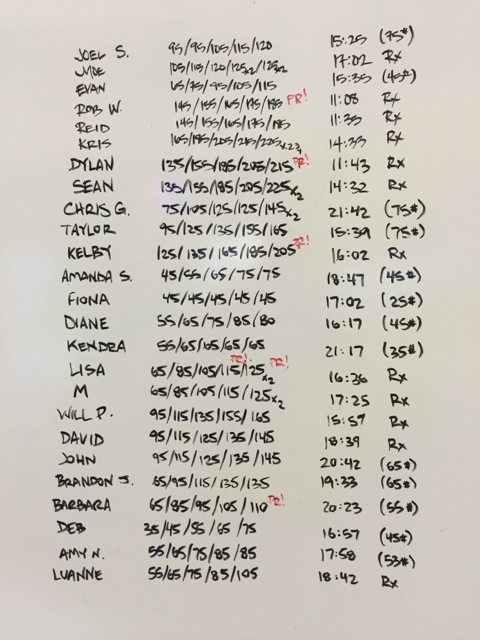 JOEL S. 95/95/105/115/120 15:25 (75#)
JUDE 105/115/120/125x2/125x2 17:02 Rx
EVAN 65/75/95/105/115 15:35 (45#)
ROB W. 145/155/165/175/185 PR! 11:08 Rx
REID 145/155/165/175/185 11:33 Rx
KRIS 165/185/205/215/225 14:33 Rx
DYLAN 135/155/185/205/215 PR! 11:43 Rx
SEAN 135/155/185/205/225x2 14:32 Rx
CHRIS G. 75/105/125/125/145x2 21:42 (75#)
TAYLOR 95/125/135/155/165 15:39 (75#)
KELBY 125/135/165/185/205 PR! 16:02 Rx
AMANDA S. 45/55/65/75/75 18:47 (45#)
FIONA 45/45/45/45/45 17:02 (25#)
DIANE 55/65/75/85/80 16:17 (45#)
KENDRA 55/65/65/65/65 21:17 (35#)
PR! PR!
LISA 65/85/105/115/125x2 16:36 Rx
M 65/85/105/115/125x2 17:25 Rx
WILL P. 95/115/135/155/165 15:57 Rx
DAVID 95/115/125/135/145 18:39 Rx
JOHN 95/115/125/135/145 20:42 (65#)
BRANDON S. 65/95/115/135/135 19:33 (65#)
BARBARA 65/85/95/105/110 PR! 20:23 (55#)
DEB 35/45/55/65/75 16:57 (45#)
AMY N. 55/65/75/85/85 17:58 (53#)
LUANNE 55/65/75/85/105 18:42 Rx